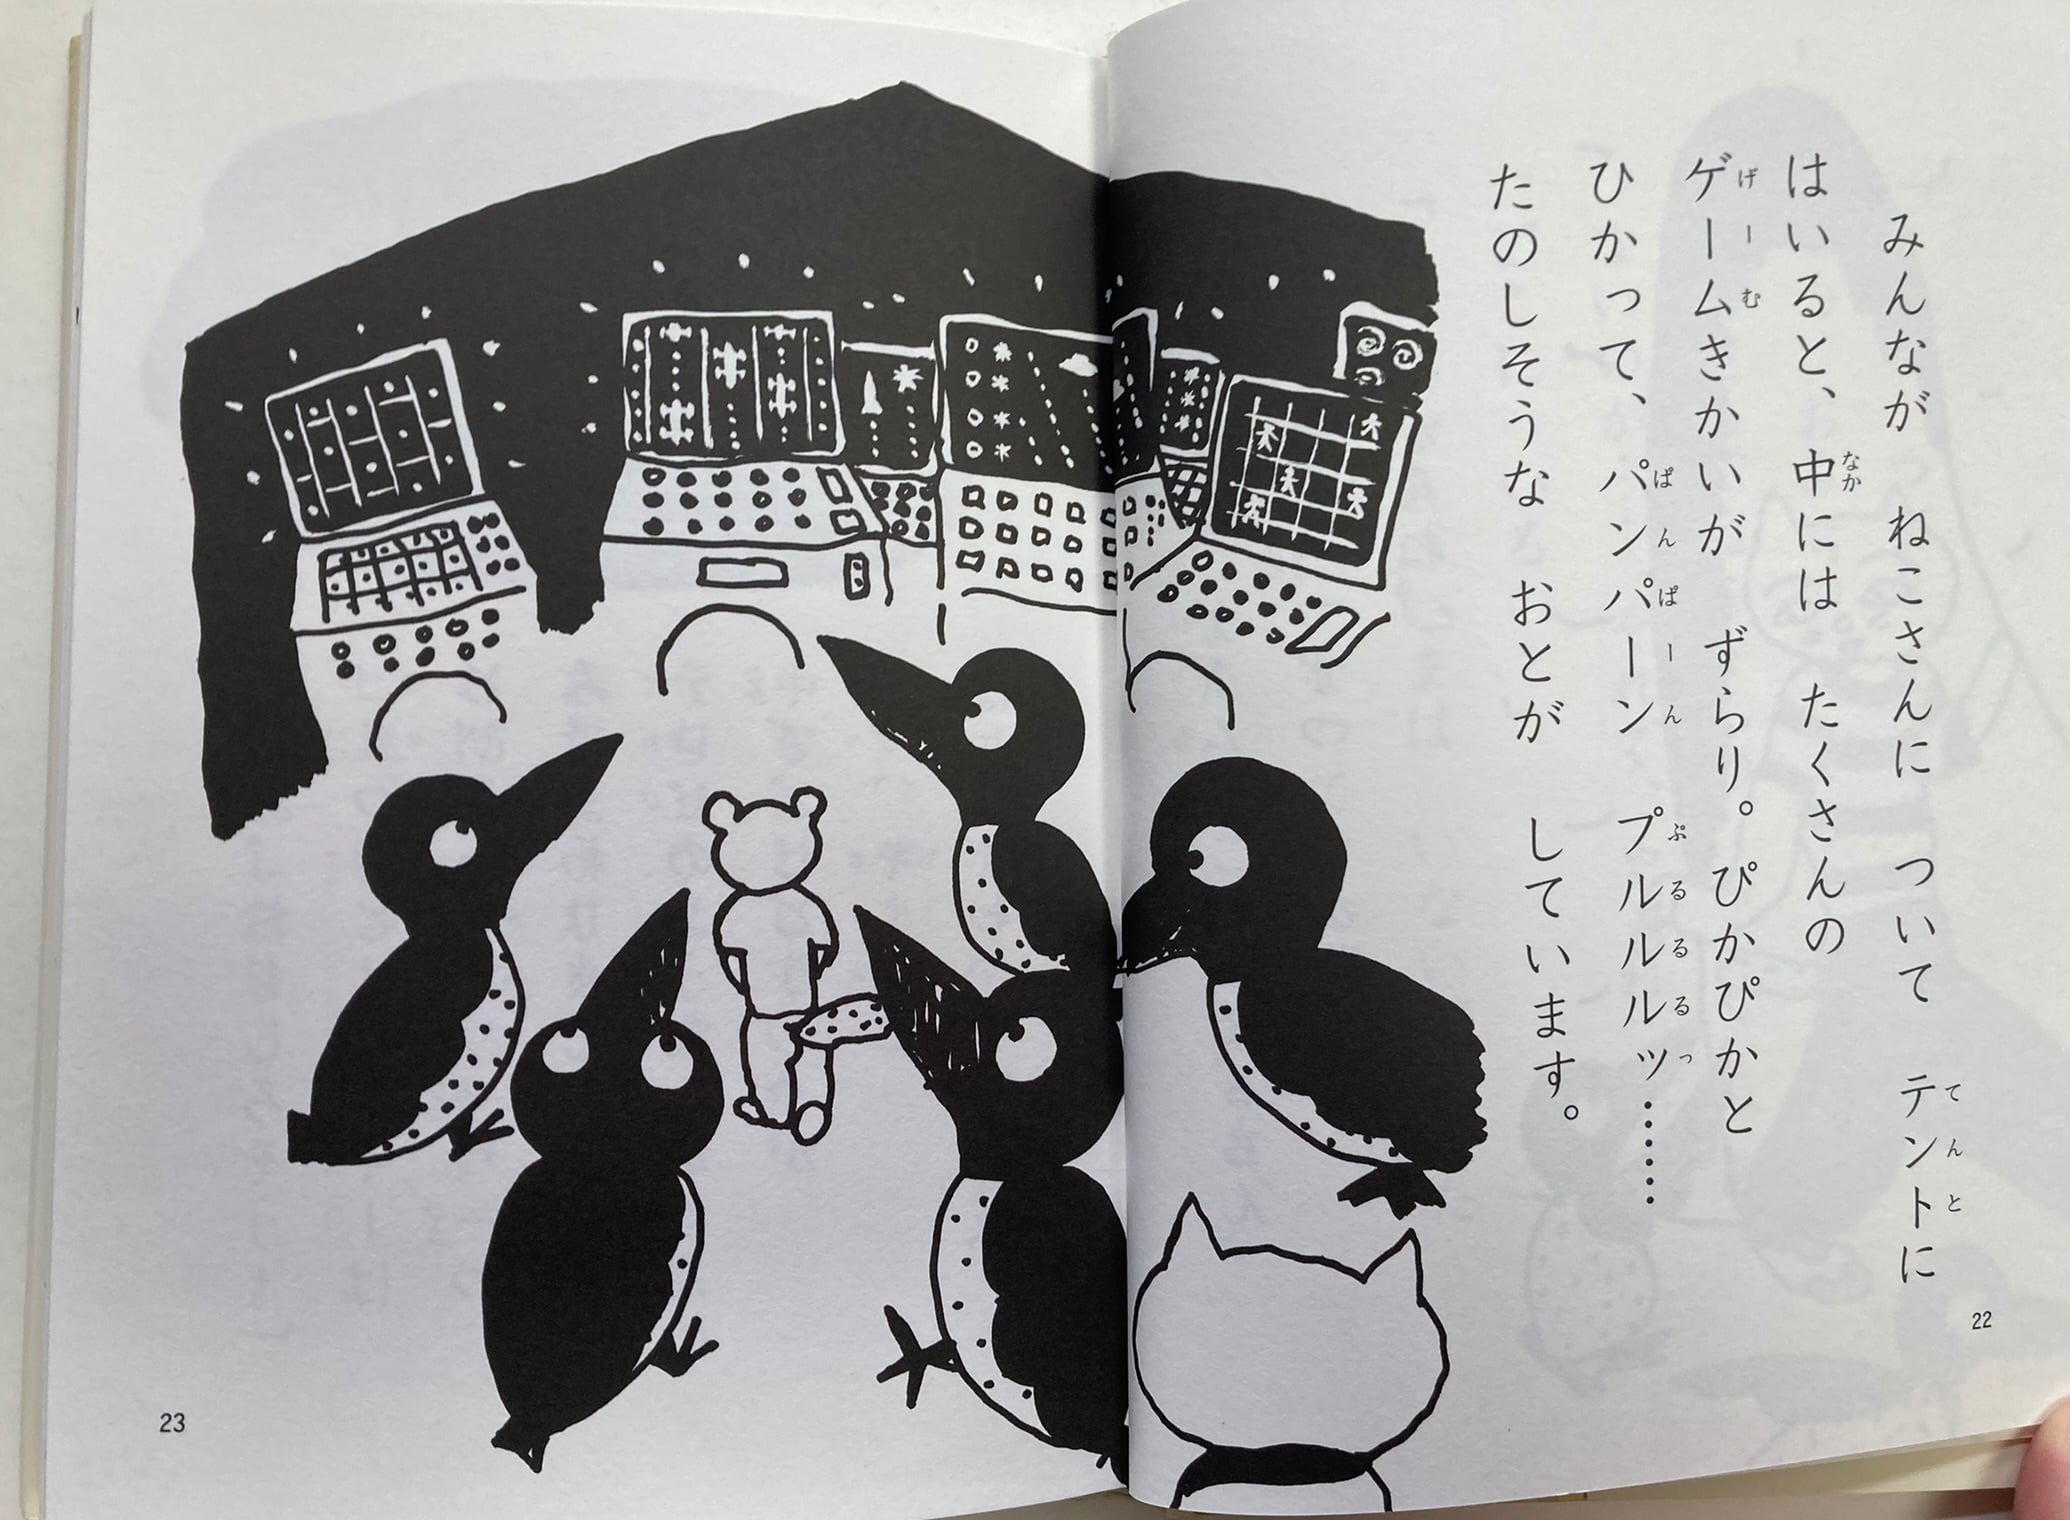 みんなが ねこさんに ついて テントに
はいると、中には たくさんの
ゲームきかいが ずらり。ぴかぴかと
ひかって、パンパーン プルルルッ……
たのしそうな おとが しています。
てんと
なか
げーむ
ぱんぱーん ぷるるるっ
22
23